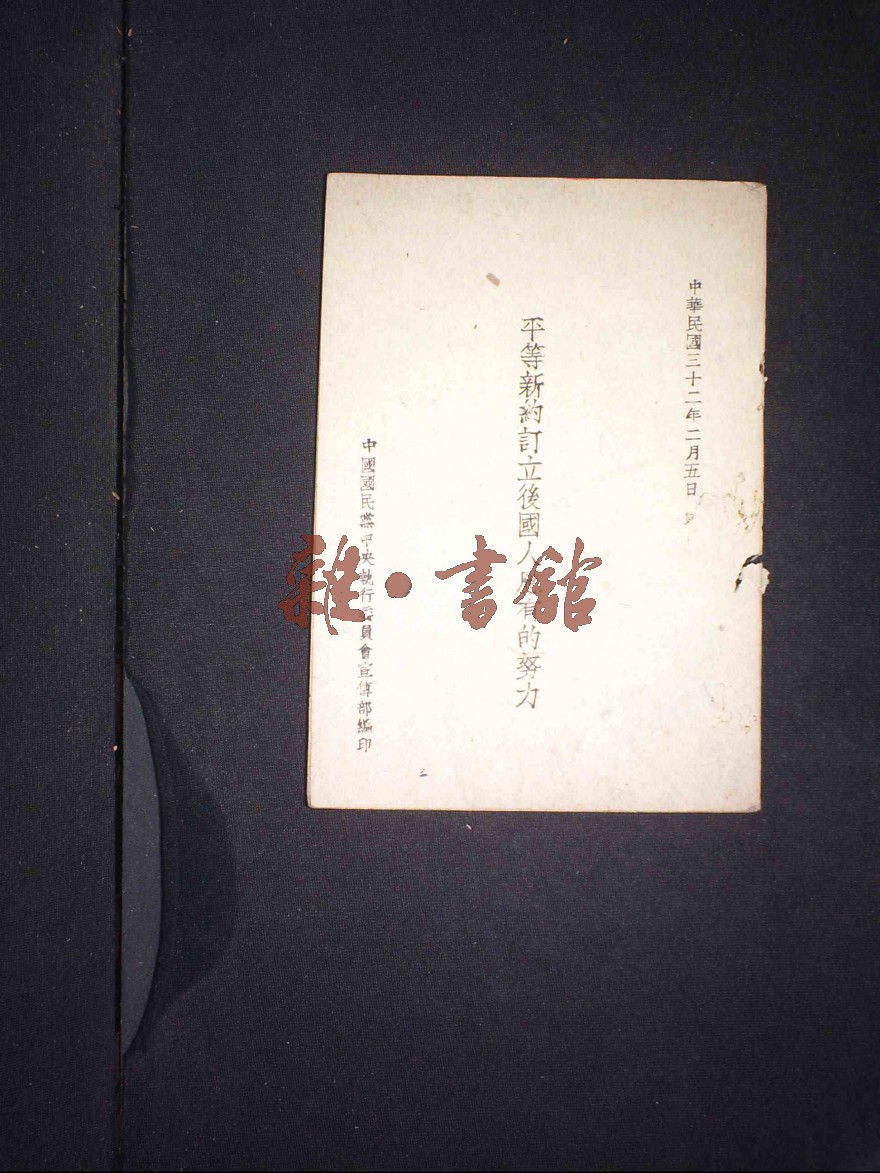 中華民國三十二年二月五日
平等新約訂立後國人應有的努力
中國國民黨中央執行委員會宣傳部編印
雜·書館